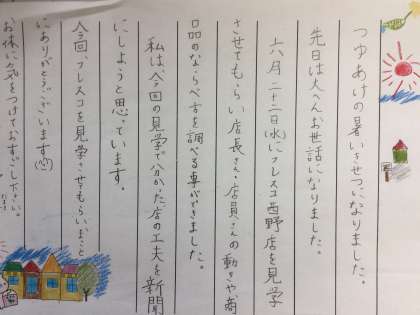 つゆあけの暑いきせつになりました。
先日は大へんお世話になりました。
六月二十二日(水)にフレスコ西野店を見学
させてもらい店長さん・店員さんの動きや商
品のならべ方を調べる事ができました。
私は今回の見学で分かった店の工夫を新聞
にしようと思っています。
今回、フレスコを見学させてもらいまこと
にありがとうございます
お体に気をつけておすごし下さい。